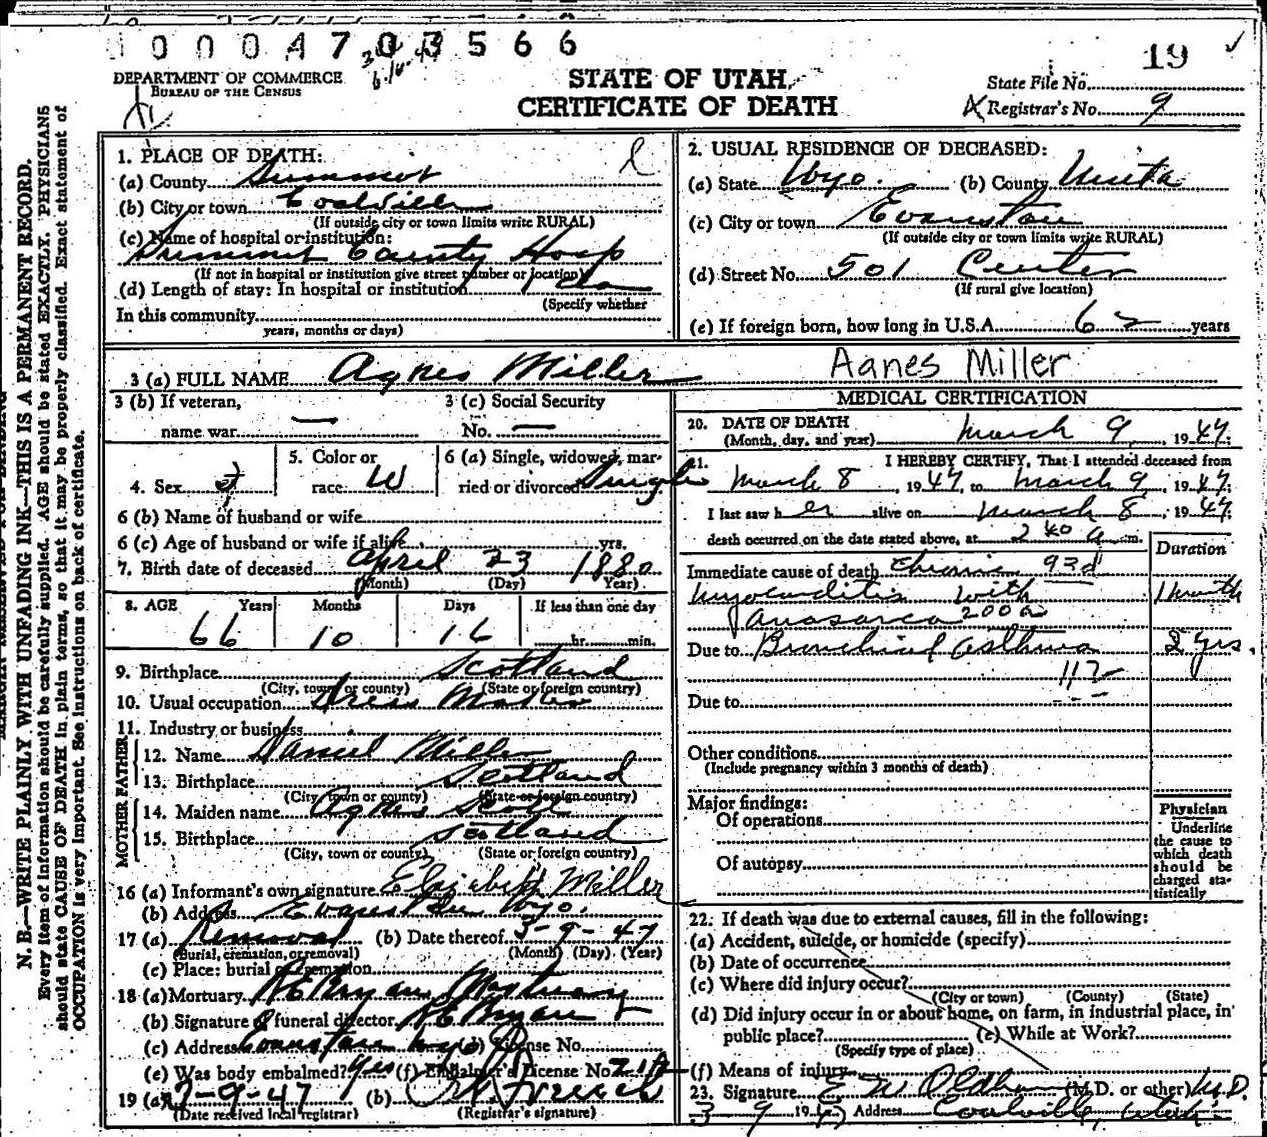 1 0 0 0 4 7 0 3 5 6 6
19
DEPARTMENT OF COMMERCE
BUREAU OF THE CENSUS
STATE OF UTAH
CERTIFICATE OF DEATH
State File No.
Registrar's No. 9
1. PLACE OF DEATH:
(a) County Summit
(b) City or town Coalville
(If outside city or town limits write RURAL)
(c) Name of hospital or institution:
Summit County Hosp
(If not in hospital or institution give street number or location)
(d) Length of stay: In hospital or institution 1 da
(Specify whether
In this community
years, months or days)
2. USUAL RESIDENCE OF DECEASED:
(a) State Wyo. (b) County Uinta
(c) City or town Evanston
(If outside city or town limits write RURAL)
(d) Street No. 501 Center
(If rural give location)
(e) If foreign born, how long in U.S.A. 62 years
3 (a) FULL NAME Agnes Miller Agnes Miller
3 (b) If veteran,
name war —
3 (c) Social Security
No. —
4. Sex f
5. Color or
race W
6 (a) Single, widowed, mar-
ried or divorced Single
6 (b) Name of husband or wife
6 (c) Age of husband or wife if alive yrs.
7. Birth date of deceased April 23 1880
(Month) (Day) Year)
8. AGE Years Months Days If less than one day
66 10 16 hr. min.
9. Birthplace Scotland
(City, town or county) (State or foreign country)
10. Usual occupation Dress Maker
11. Industry or business
FATHER
12. Name Daniel Miller
13. Birthplace Scotland
(City town or county) (State or foreign country)
MOTHER
14. Maiden name Agnes Scott
15. Birthplace Scotland
(City, town or county) (State or foreign country)
16 (a) Informant's own signature Elizabeth Miller
(b) Address Evanston Wyo.
17 (a) Removal (b) Date thereof 3-9-47
(Burial, cremation, or removal) (Month) (Day) (Year)
(c) Place: burial or cremation
18 (a) Mortuary R E Bryan Mortuary
(b) Signature of funeral director R E Bryan
(c) Address Evanston Wyo (d) License No.
(e) Was body embalmed? Yes (f) Embalmer's License No.
19 (a) 3-9-47 (b)
(Date received local registrar) (Registrar's signature)
MEDICAL CERTIFICATION
20. DATE OF DEATH
(Month, day, and year) March 9, 1947
21. I HEREBY CERTIFY, That I attended deceased from
March 8, 1947, to March 9, 1947.
I last saw her alive on March 8, 1947.
death occurred on the date stated above, at 2 40 a m.
Duration
Immediate cause of death Chronic 93d
myocarditis with 1 month
anasarca 200a
Due to Bronchial asthma 2 yrs.
112
Due to
Other conditions
(Include pregnancy within 3 months of death)
Major findings:
Of operations
Of autopsy
Physician
Underline
the cause to
which death
should be
charged sta-
tistically
22. If death was due to external causes, fill in the following:
(a) Accident, suicide, or homicide (specify)
(b) Date of occurrence
(c) Where did injury occur?
(City or town) (County) (State)
(d) Did injury occur in or about home, on farm, in industrial place, in
public place? (e) While at Work?
(Specify type of place)
(f) Means of injury
23. Signature E W Oldham (M.D. or other) M.D.
3 9 1947 Address Coalville, Utah
N. B.—WRITE PLAINLY WITH UNFADING INK—THIS IS A PERMANENT RECORD.
Every item of information should be carefully supplied. AGE should be stated EXACTLY. PHYSICIANS
should state CAUSE OF DEATH in plain terms, so that it may be properly classified. Exact statement of
OCCUPATION is very important. See instructions on back of certificate.